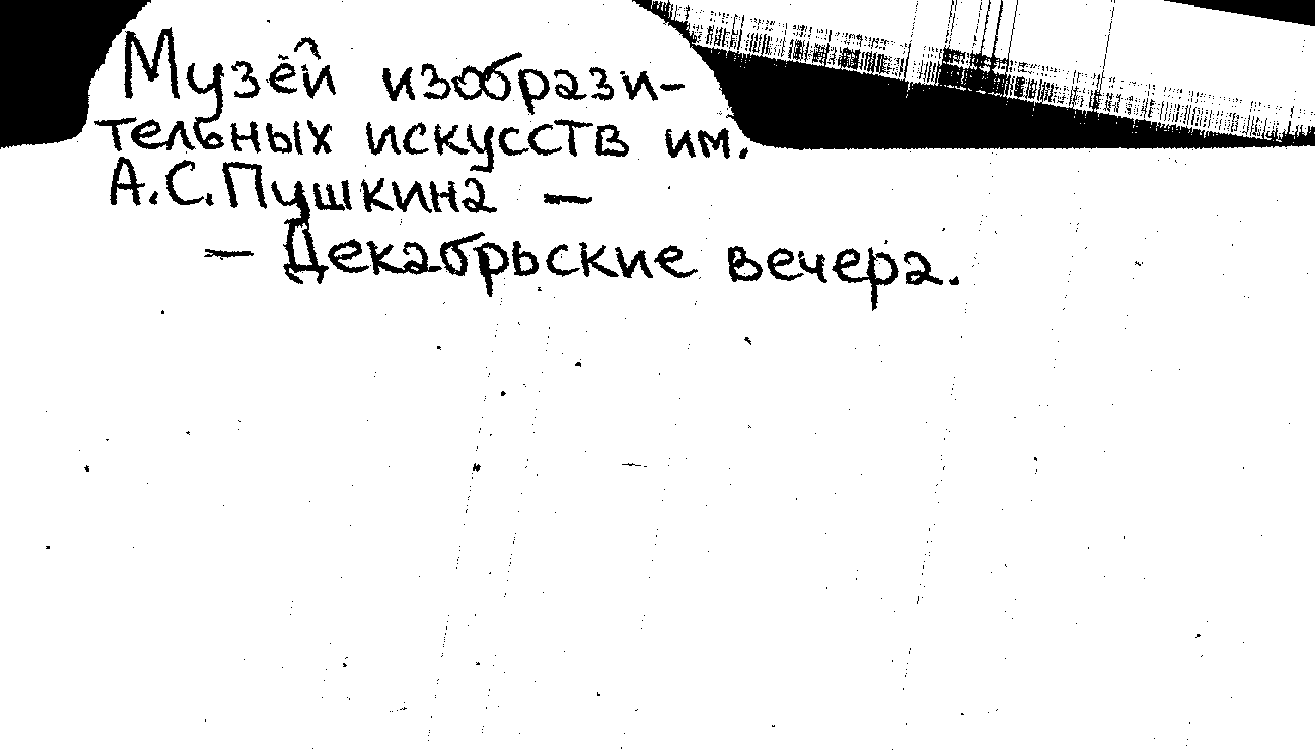 Музей изобрази-
тельных искусств им.
А.С.Пушкина —
— Декабрьские вечера.